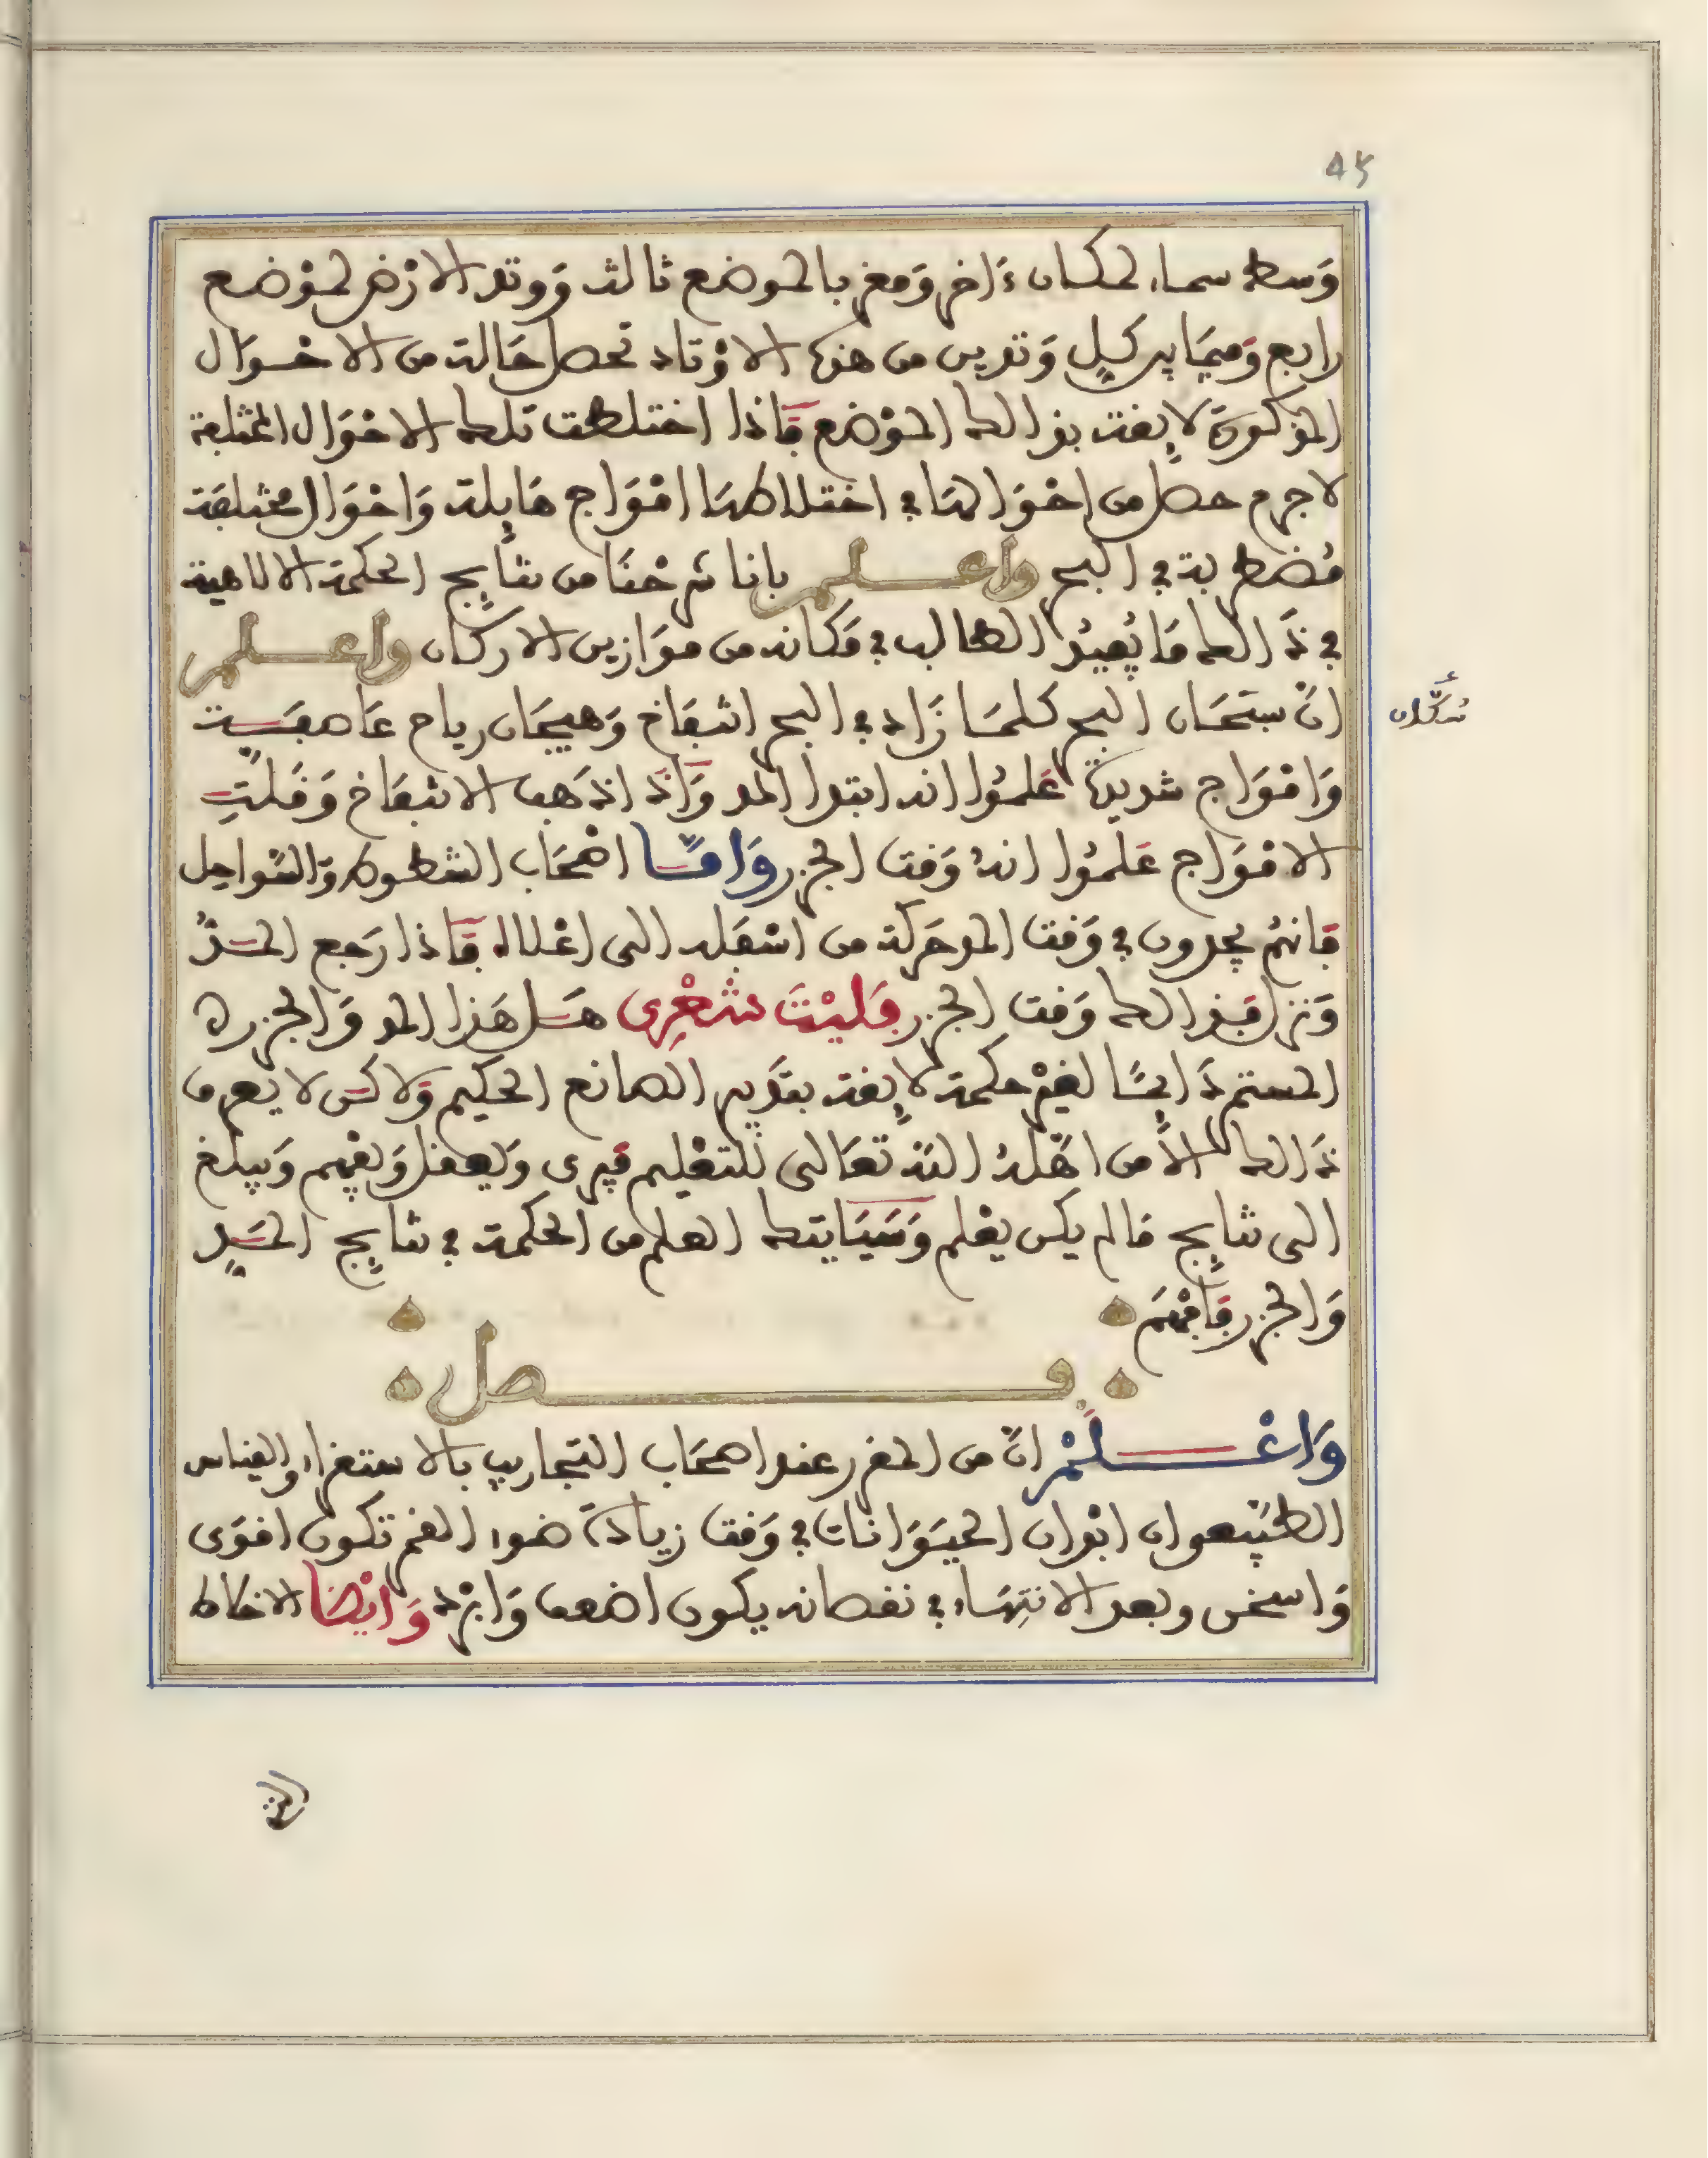 45
وَسط سماء لمكان ءَاخر وَمغربا لموضع ثالث وَوتد الارْض لموْضع
رابع وَفيمَا بين كلٍ وَتدين من هذه الاوْتاد تحصل حَالة من الاحْوَال
المذكورَة لايقة بذالك الموْضع فَاذا اختلطت تلك الاحْوَال المختلفة
لاجرم حصل من احْوَالهَا في اختلاطهَا امْوَاج هَايلة وَاحْوَال مختلفَة
مُضطربة في البحر واعلم بانا شرحْنَا من نتَايج الحكمة الالاهية
في ذَالك مَا يُفيدُ الطالب في مَكانه من موَازين الاركان واعلم
انّ سكان البحر كلمَا رَاو في البحر انتفَاخ وَهيجَان رياح عَاصفَة
وَامْوَاج شديدَة عَلمُوا انه ابتدا المد وَاذَا ذهب الانتفَاخ وَقَلتِ
الامْوَاج عَلمُوا انهُ وَقت الجزر وَامّا اصْحَاب الشطوط وَالسّوَاحِل
فَانهُم يجدون في وَقت المد حَركة من اسْفَله الى اعْلاه فَاذا رَجع المَدُّ
وَنزل فَبذالك وَقت الجزر فَليْتَ شعْرِى هَل هَذا المد وَالجزر ه
المستمر دَايمًا لغيْر حكمة لايقة بتقدِير الصانع الحكيم وَلاكن لا يعرف
ذَالك الاّ من اهّلهُ اللهُ تعَالى للتعْليم فيرى وَيعقل وَيفْهم وَيبلغ
الى نتايج مَا لم يكن يعْلم وَسَيَاتيك العلم من الحكمة في نتايج المَدِ
وَالجزر فَافْهَم
فصل
وَاعْلَمْ انّ من المقرر عند اصْحَاب التجاريب بالاستقراء والقياس
الطبّيعي ان ابْدان الحيَوَانات في وَقت زيادَة ضوء القمر تكون اقوَى
وَاسخن وبعد الانتِهَاء في نقصانه يكون اضعف وَابْرد وَايْضا الاخلاط
التي